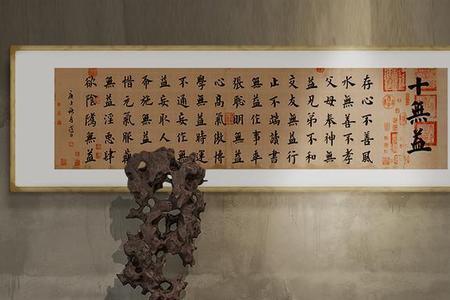 十無益
存心不善風
水無益不孝
父母奉神無
益兄弟不和
交友無益行
止不端讀書
無益作事乖
張聰明無益
心高氣傲博
學無益時運
不通妄作無
益妄取人
布施無益
惜元氣服藥
無益淫惡肆
欲陰騭無益